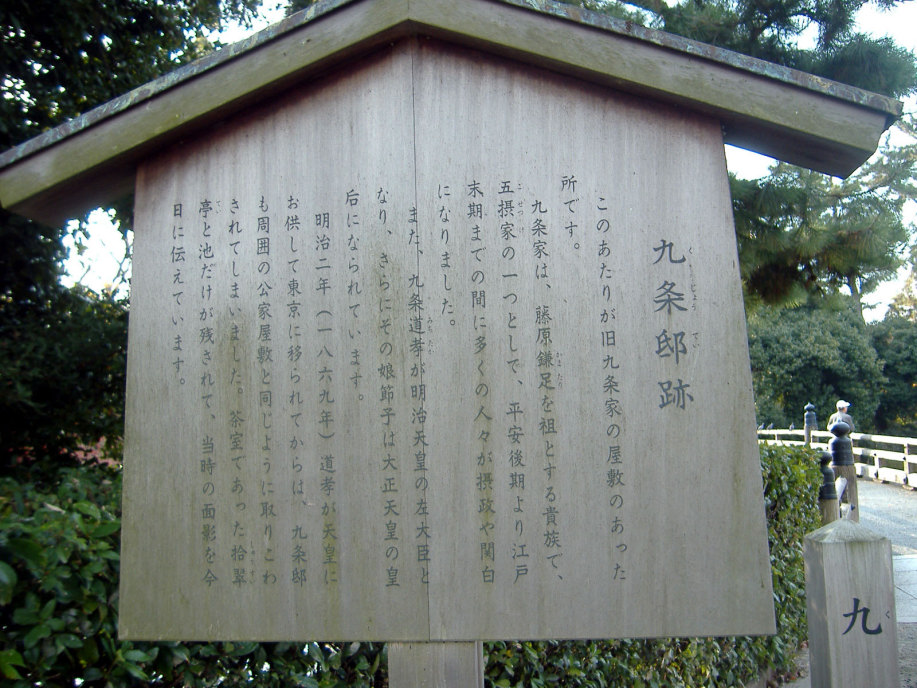 九条邸跡
このあたりが旧九条家の屋敷のあった
所です。
九条家は、藤原鎌足を祖とする貴族で、
五摂家の一つとして、平安後期より江戸
末期までの間に多くの人々が摂政や関白
になりました。
また、九条道孝が明治天皇の左大臣と
なり、さらにその娘節子は大正天皇の皇
后になられています。
明治二年（一八六九年）道孝が天皇に
お供して東京に移られてからは、九条邸
も周囲の公家屋敷と同じように取りこわ
されてしまいました。茶室であった拾翠
亭と池だけが残されて、当時の面影を今
日に伝えています。
九